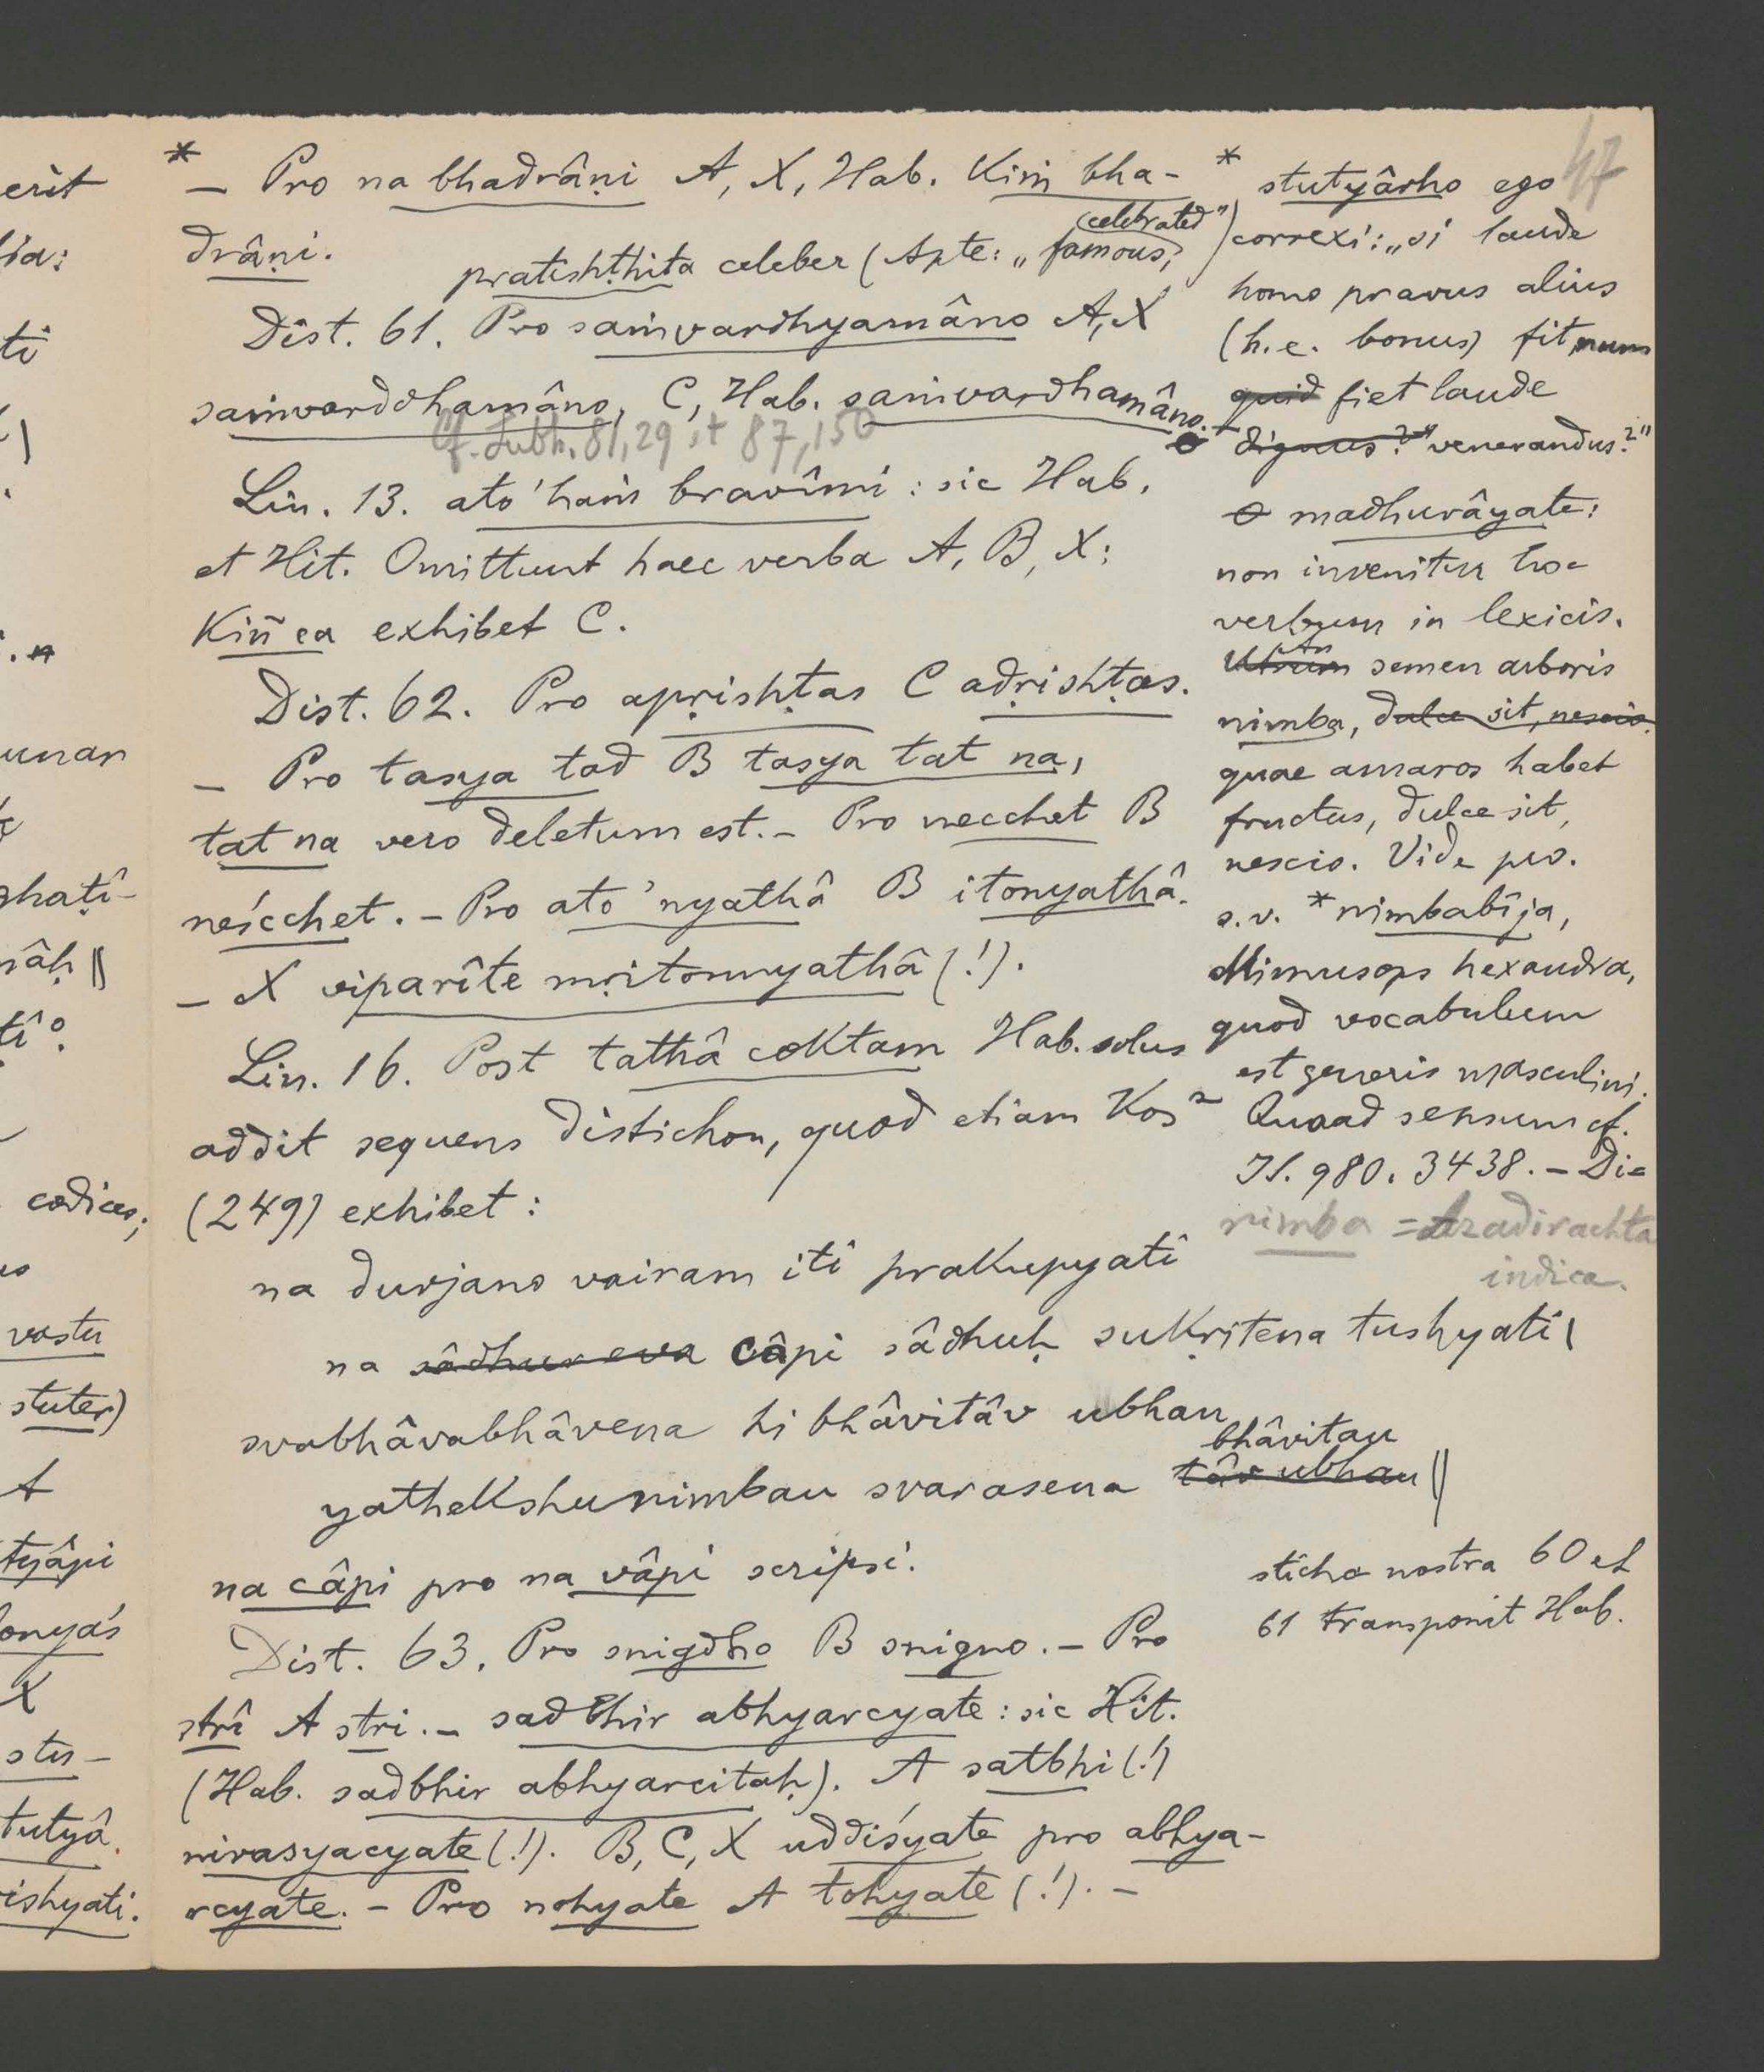 47
* — Pro na bhadrâṇi A, X, Hab. Kiṁ bha-
drâṇi.
pratishṭhita celeber (Apte: „famous, celebrated")
Dist. 61. Pro saṁvardhyamâno A, X
saṁvarddhamâno, C, Hab. saṁvardhamâno.
Cf. Subh. 81,29 et 87,150
Lin. 13. ato 'haṁ bravîmi: sic Hab.
et Hit. Omittunt haec verba A, B, X;
Kiñ ca exhibet C.
Dist. 62. Pro apṛishṭas C adṛishṭas.
— Pro tasya tad B tasya tat na,
tat na vero deletum est. — Pro necchet B
neścchet. — Pro ato 'nyathâ B itonyathâ.
— X viparîte mṛitonnyathâ (!).
Lin. 16. Post tathâ coktam Hab. solus
addit sequens distichon, quod etiam Kos²
(249) exhibet:
na durjano vairam iti prakupyati
na sâdhur eva câpi sâdhuḥ sukṛitena tushyati |
svabhâvabhâvena hi bhâvitâv ubhau
yathekshunimbau svarasena tâv ubhau bhâvitau ||
na câpi pro na vâpi scripsi.
Dist. 63. Pro snigdho B snigno. — Pro
strî A stri. — sadbhir abhyarcyate: sic Hit.
(Hab. sadbhir abhyarcitaḥ). A satbhi (!)
nirasyacyate (!). B, C, X uddiśyate pro abhya-
rcyate. — Pro nohyate A tohyate (!). —
* stutyârho ego
correxi: „si laude
homo pravus alius
(h.e. bonus) fit, num
quid fiet laude
dignus?" venerandus?"
madhurâyate:
non invenitur hoc
verbum in lexicis.
Utrum An semen arboris
nimba, dulce sit, nescio.
quae amaros habet
fructus, dulce sit,
nescio. Vide pw.
s.v. *nimbabîja,
Mimusops hexandra,
quod vocabulum
est generis masculini.
Quoad sensum cf.
IS. 980. 3438. — Di-
nimba = Azadirachta
indica.
sticha nostra 60 et
61 transponit Hab.
erit
ti
unar
ghaṭî-
codices;
vastu
stuter)
A
tyâpi
X
stu-
tutyâ.
ishyati.